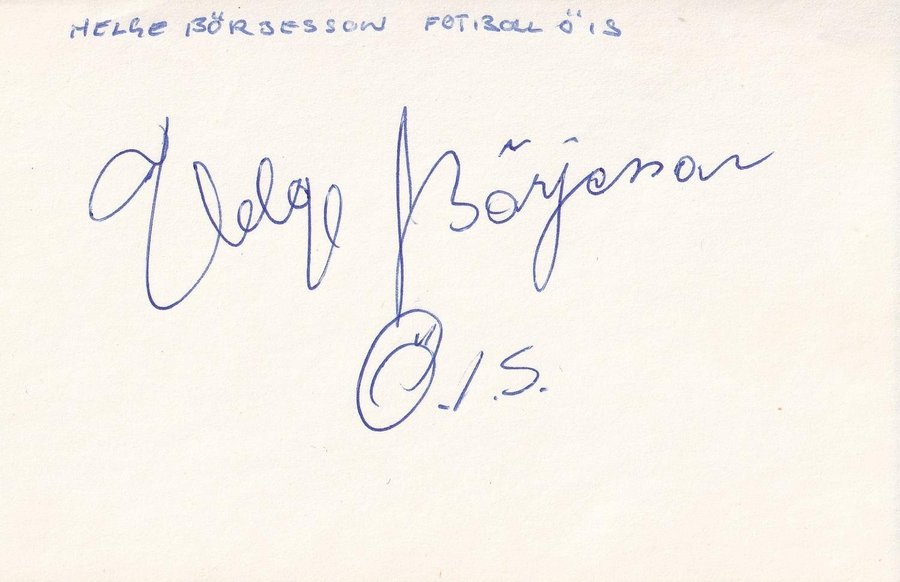 HELGE BÖRJESSON FOTBOLL Ö IS
Helge Börjesson
Ö.I.S.